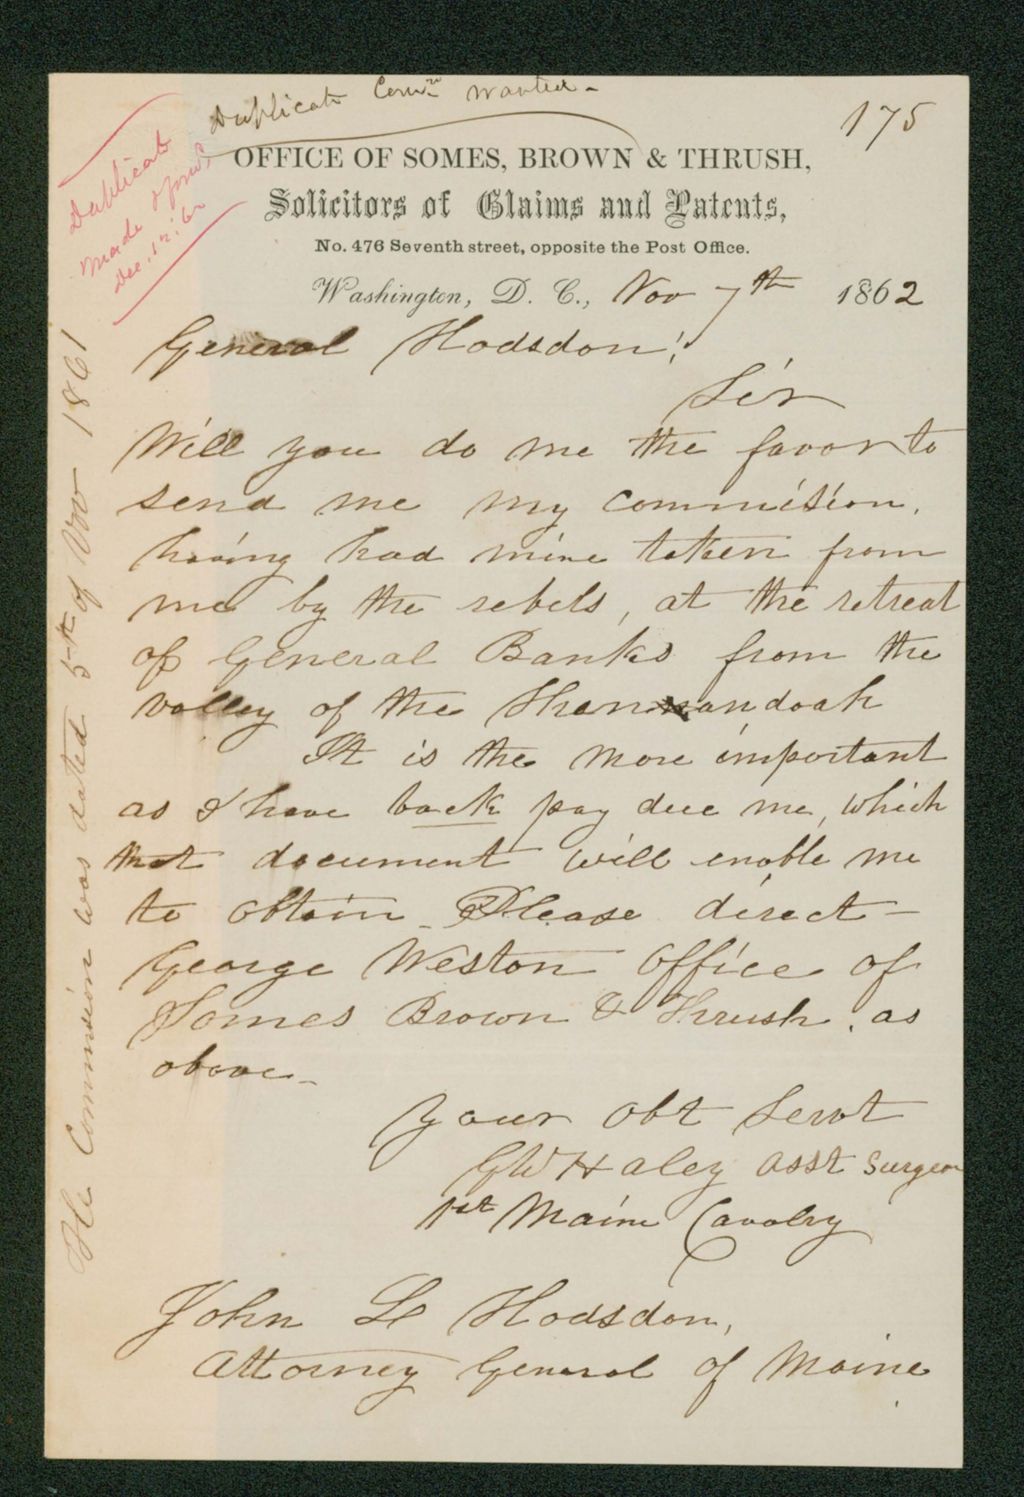 Duplicate Comn wanted-
175
Duplicate
made & forwd
Dec. 12. 62
OFFICE OF SOMES, BROWN & THRUSH,
Solicitors of Claims and Patents,
No. 476 Seventh street, opposite the Post Office.
Washington, D. C., Nov 7th 1862
General Hodsdon;
Sir
Will you do me the favor to
send me my commission,
having had mine taken from
me by the rebels, at the retreat
of General Banks from the
valley of the Shenandoah
It is the more important
as I have back pay due me, which
that document will enable me
to obtain_ Please direct-
George Weston Office of
Somes Brown & Thrush, as
above_
Your Obt Servt
GW Haley Asst Surgeon
1st Maine Cavalry
John L Hodsdon,
Attorney General of Maine
The Commission was dated 5th of Nov 1861